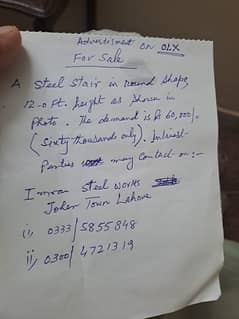 Advertisment on OLX
For Sale
A Steel Stair in round shape
12-0 Ft. height as shown in
photo. The demand is Rs 60,000/.
(Sixty thousands only). Interest-
Parties may contact on :-
Imran Steel works
Joher Town Lahore
i, 0333/5855848
ii, 0300/4721319